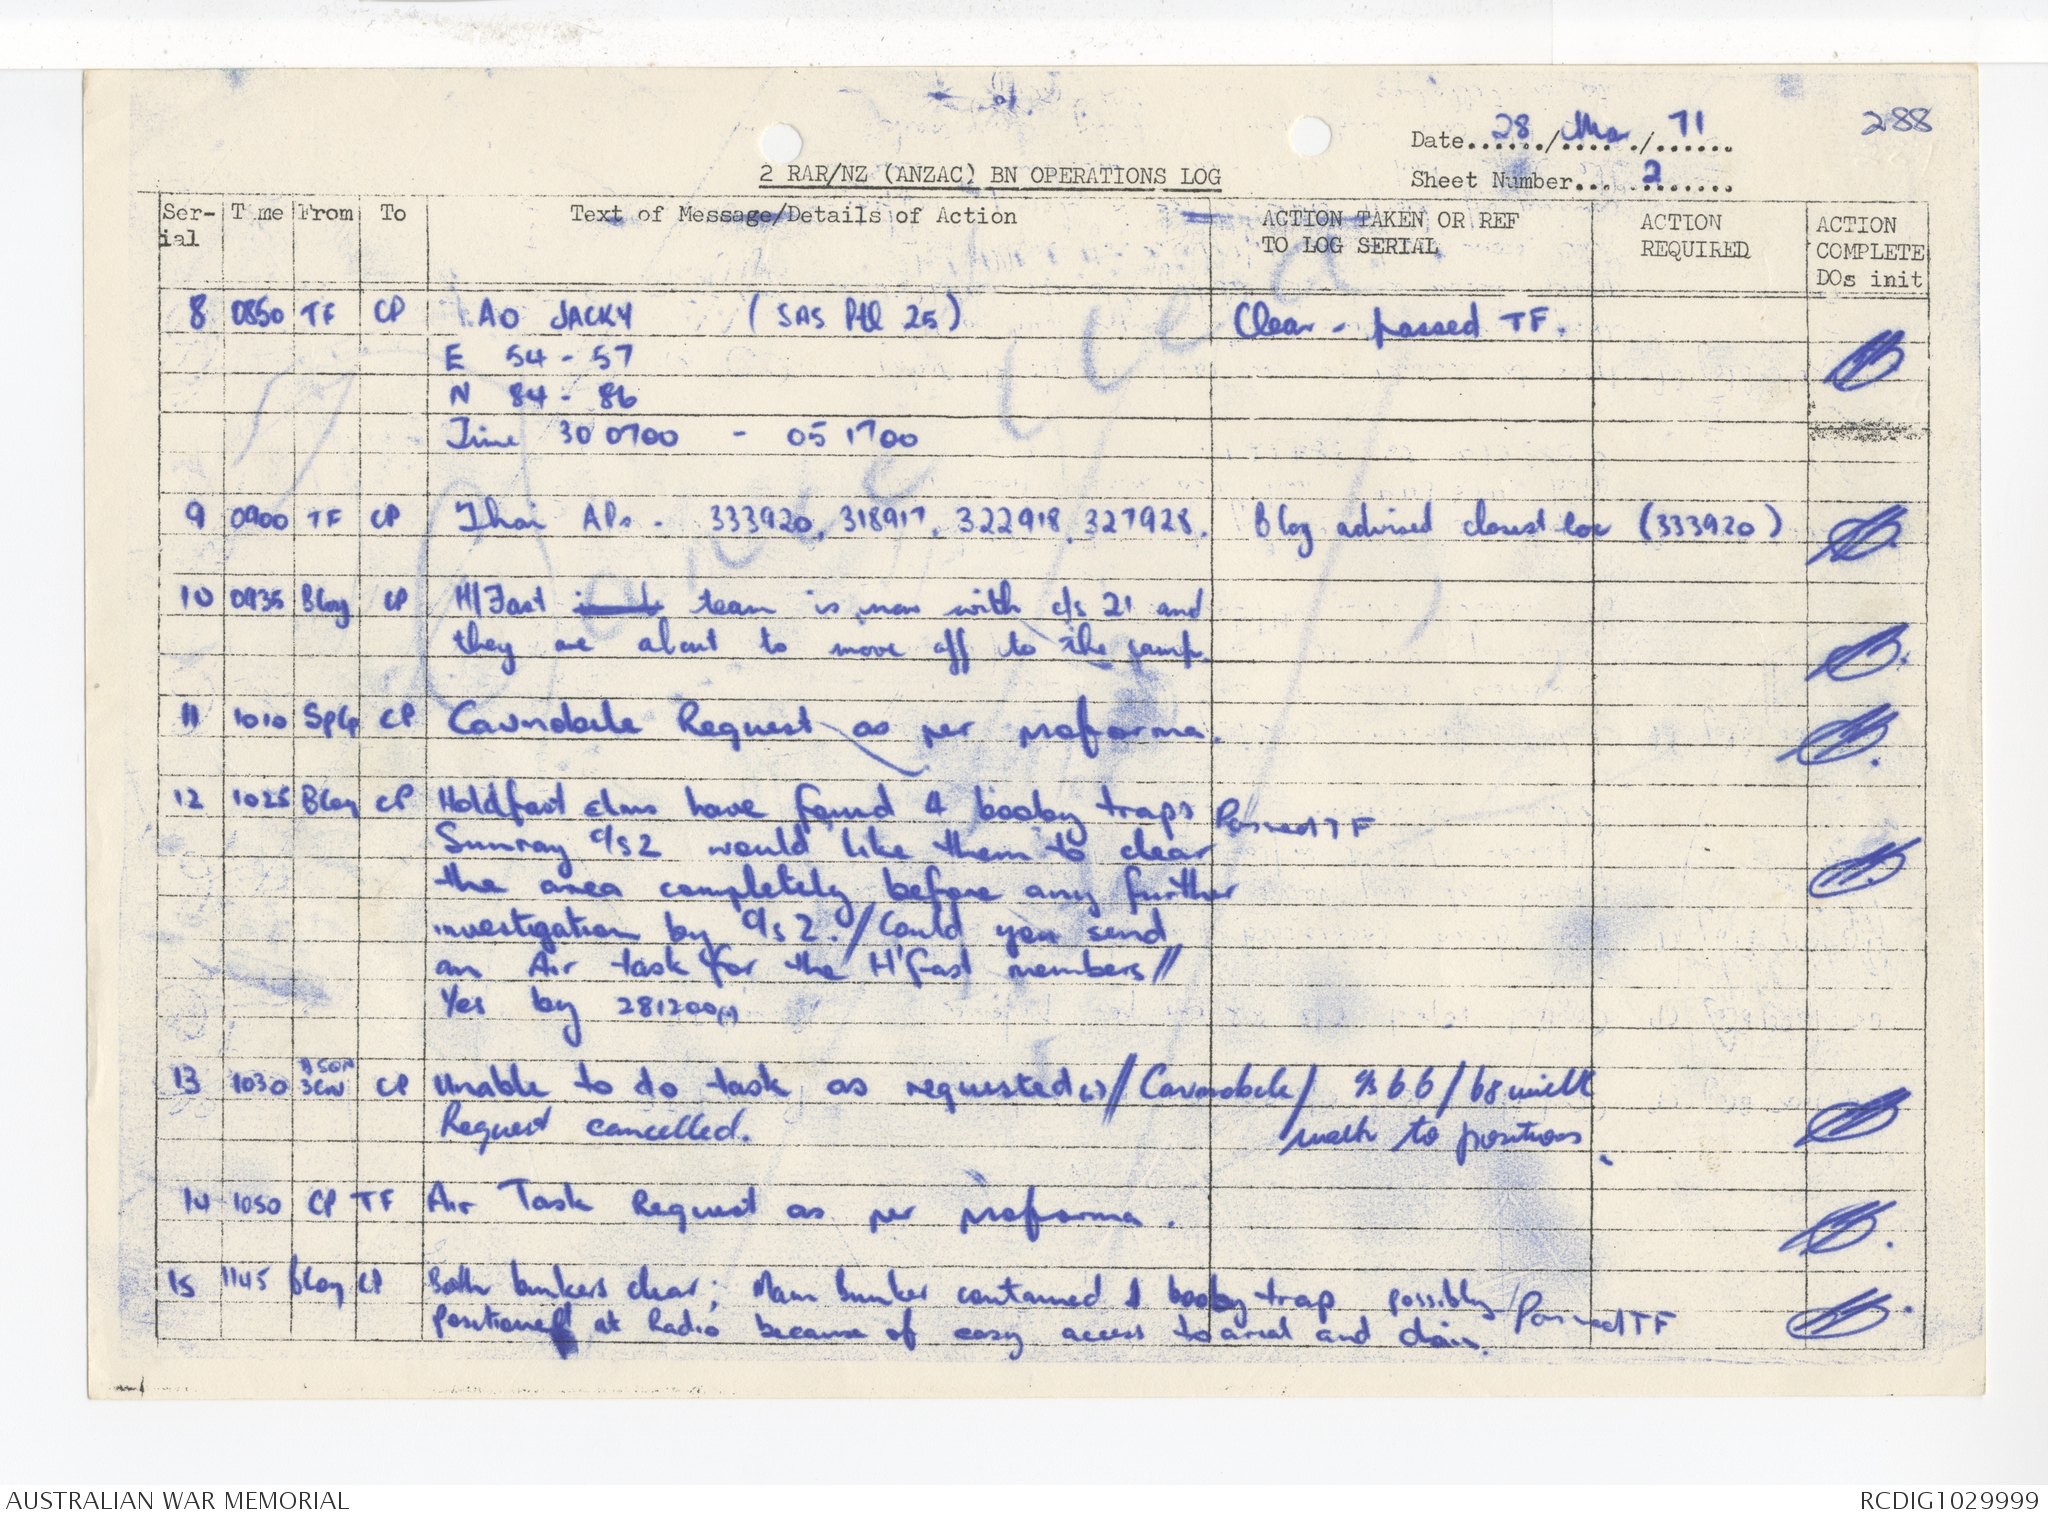 288
Date 28 / Mar / 71
Sheet Number 2
2 RAR/NZ (ANZAC) BN OPERATIONS LOG
Ser-ial Time From To Text of Message/Details of Action ACTION TAKEN OR REF TO LOG SERIAL ACTION REQUIRED ACTION COMPLETE DOs init
8 0850 TF CP AO JACKY (SAS Ptl 25) Clear - passed TF.
E 54 - 57
N 84 - 86
Time 30 0700 - 05 1700
9 0900 TF CP Thai APs - 333920, 318917, 322918, 327928. B Coy advised closest loc (333920)
10 0935 BCoy CP H/Fast team is now with c/s 21 and
they are about to move off to the camp.
11 1010 SpCp CP Request as per proforma.
12 1025 BCoy CP Holdfast elms have found 4 booby traps Passed TF
Sunray c/s 2 would like them to clear
the area completely before any further
investigation by c/s 2. / Could you send
an Air task for the H'fast members //
Yes by 281200(?)
13 1030 CP Unable to do task as requested(.) // / c/s 66 / 68 will
Request cancelled. walk to positions.
14 1050 CP TF Air Task Request as per proforma.
15 1145 BCoy CP Both bunkers clear; Main bunker contained 1 booby trap possibly / Passed TF
positioned at Radio because of easy access to arial and chair.
AUSTRALIAN WAR MEMORIAL
RCDIG1029999